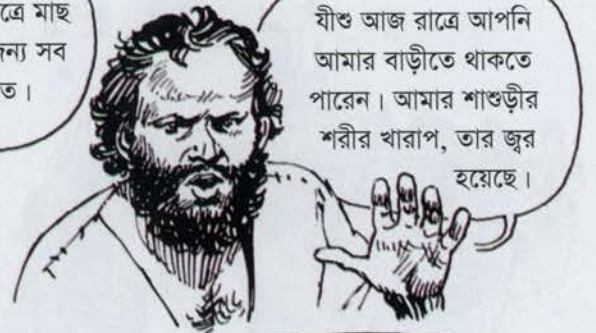 ত্রে মাছ
জন্য সব
ত।
যীশু আজ রাত্রে আপনি
আমার বাড়ীতে থাকতে
পারেন। আমার শাশুড়ীর
শরীর খারাপ, তার জ্বর
হয়েছে।